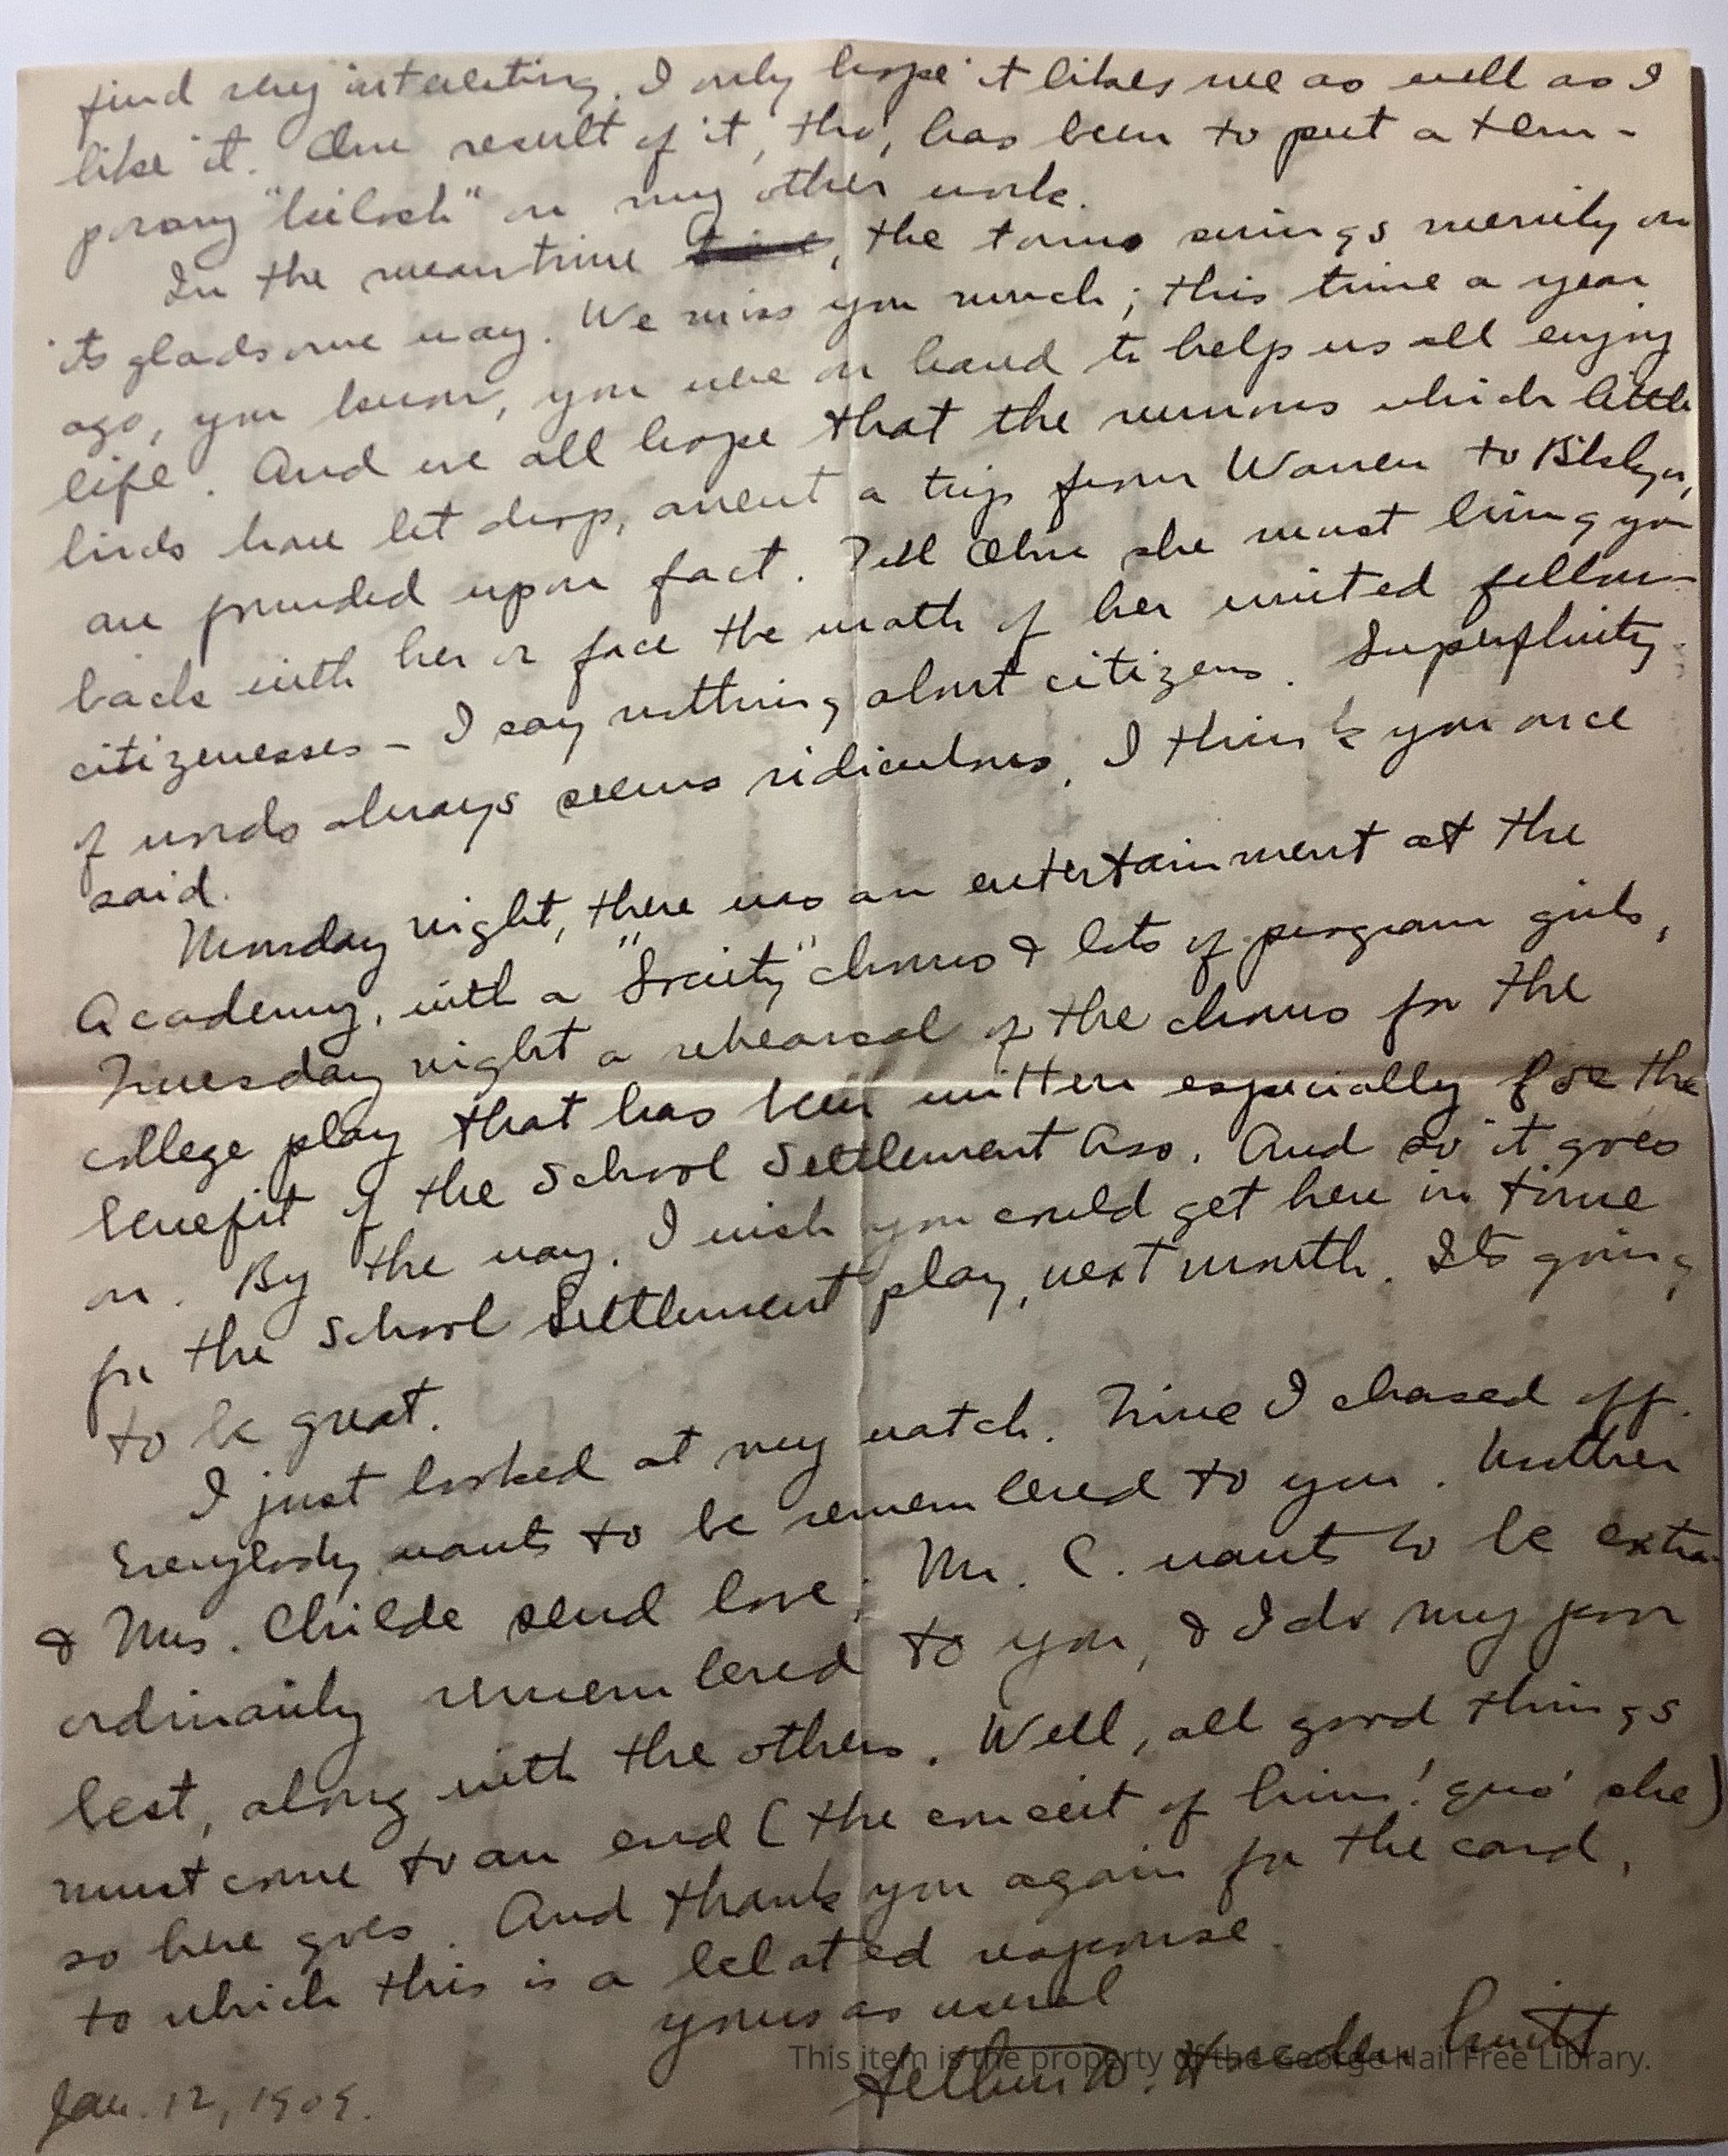 find very interesting. I only hope it likes me as well as I
like it. One result of it, tho', has been to put a tem-
porary "kibosh" on my other work.
In the meantime, the town swings merrily on
its gladsome way. We miss you much; this time a year
ago, you know, you were on hand to help us all enjoy
life. And we all hope that the rumors which little
birds have let drop, anent a trip from Warren to Bklyn,
are founded upon fact. Tell Olive she must bring you
back with her or face the wrath of her united fellow-
citizenesses - I say nothing about citizens. Superfluity
of words always seems ridiculous, I think you once
said.
Monday night, there was an entertainment at the
Academy, with a "Society" chorus & lots of program girls,
Tuesday night a rehearsal of the chorus for the
college play that has been written especially for the
benefit of the School Settlement Asso. And so it goes
on. By the way, I wish you could get here in time
for the School Settlement play, next month. Its going
to be great.
I just looked at my watch. Time I chased off.
Everybody wants to be remembered to you. Mother
& Mrs. Childe send love; Mr. C. wants to be extra-
ordinarily remembered to you, & I do my poor
best, along with the others. Well, all good things
must come to an end (the conceit of him! quo' she)
so here goes. And thank you again for the card,
to which this is a belated response.
yours as usual
Arthur W.
Jan. 12, 1909.
This item is the property of the George Hail Free Library.